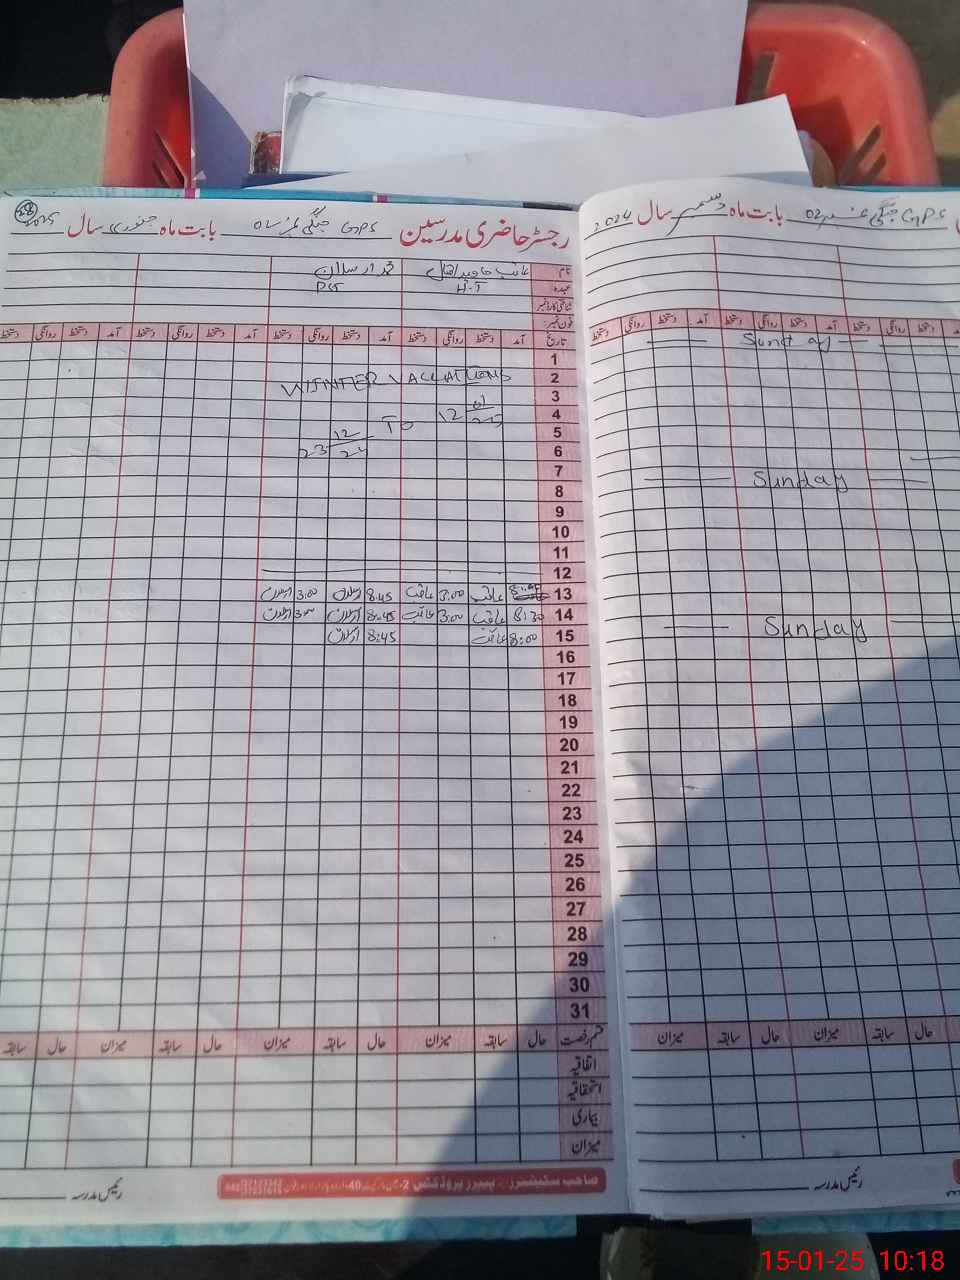 28
رجسٹر حاضری مدرسین GPS جنگی نمبر 02 بابت ماہ جنوری سال 2025
نام
عہدہ H-T PST
شناختی کارڈ نمبر
فون نمبر
تاریخ آمد دستخط روانگی دستخط آمد دستخط روانگی دستخط آمد دستخط روانگی دستخط آمد دستخط روانگی دستخط
1
2 WINTER VACCATIONS
3
4
5
23/12/24 To 12/01/25
6
7
8
9
10
11
12
13 عاقب 3:00 عاقب 8:45 ارسلان 3:00 ارسلان
14 8:30 عاقب 3:00 عاقب 8:45 ارسلان 3:00 ارسلان
15 8:00 عاقب 8:45 ارسلان
16
17
18
19
20
21
22
23
24
25
26
27
28
29
30
31
قسم رخصت حال سابقہ میزان حال سابقہ میزان حال سابقہ میزان حال سابقہ
اتفاقیہ
استحقاقیہ
بیماری
میزان
رئیس مدرسہ
صاحب سٹیشنرز اینڈ پیپر پروڈکٹس
GPS جنگی نمبر 02 بابت ماہ دسمبر سال 2024
آمد دستخط روانگی دستخط آمد دستخط روانگی دستخط آمد دستخط روانگی دستخط
Sunday
Sunday
Sunday
میزان سابقہ حال میزان سابقہ حال
رئیس مدرسہ
15-01-25 10:18